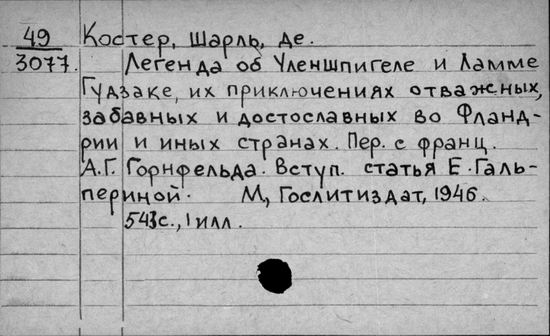 49 Костер, Шарль, де.
3077. Легенда об Уленшпигеле и Ламме
Гудзаке, их приключениях отважных,
забавных и достославных во Фланд-
рии и иных странах. Пер. с франц.
А.Г. Горнфельда. Вступ. статья Е. Галь-
периной. М, Гослитиздат, 1946.
543с., 1 илл.